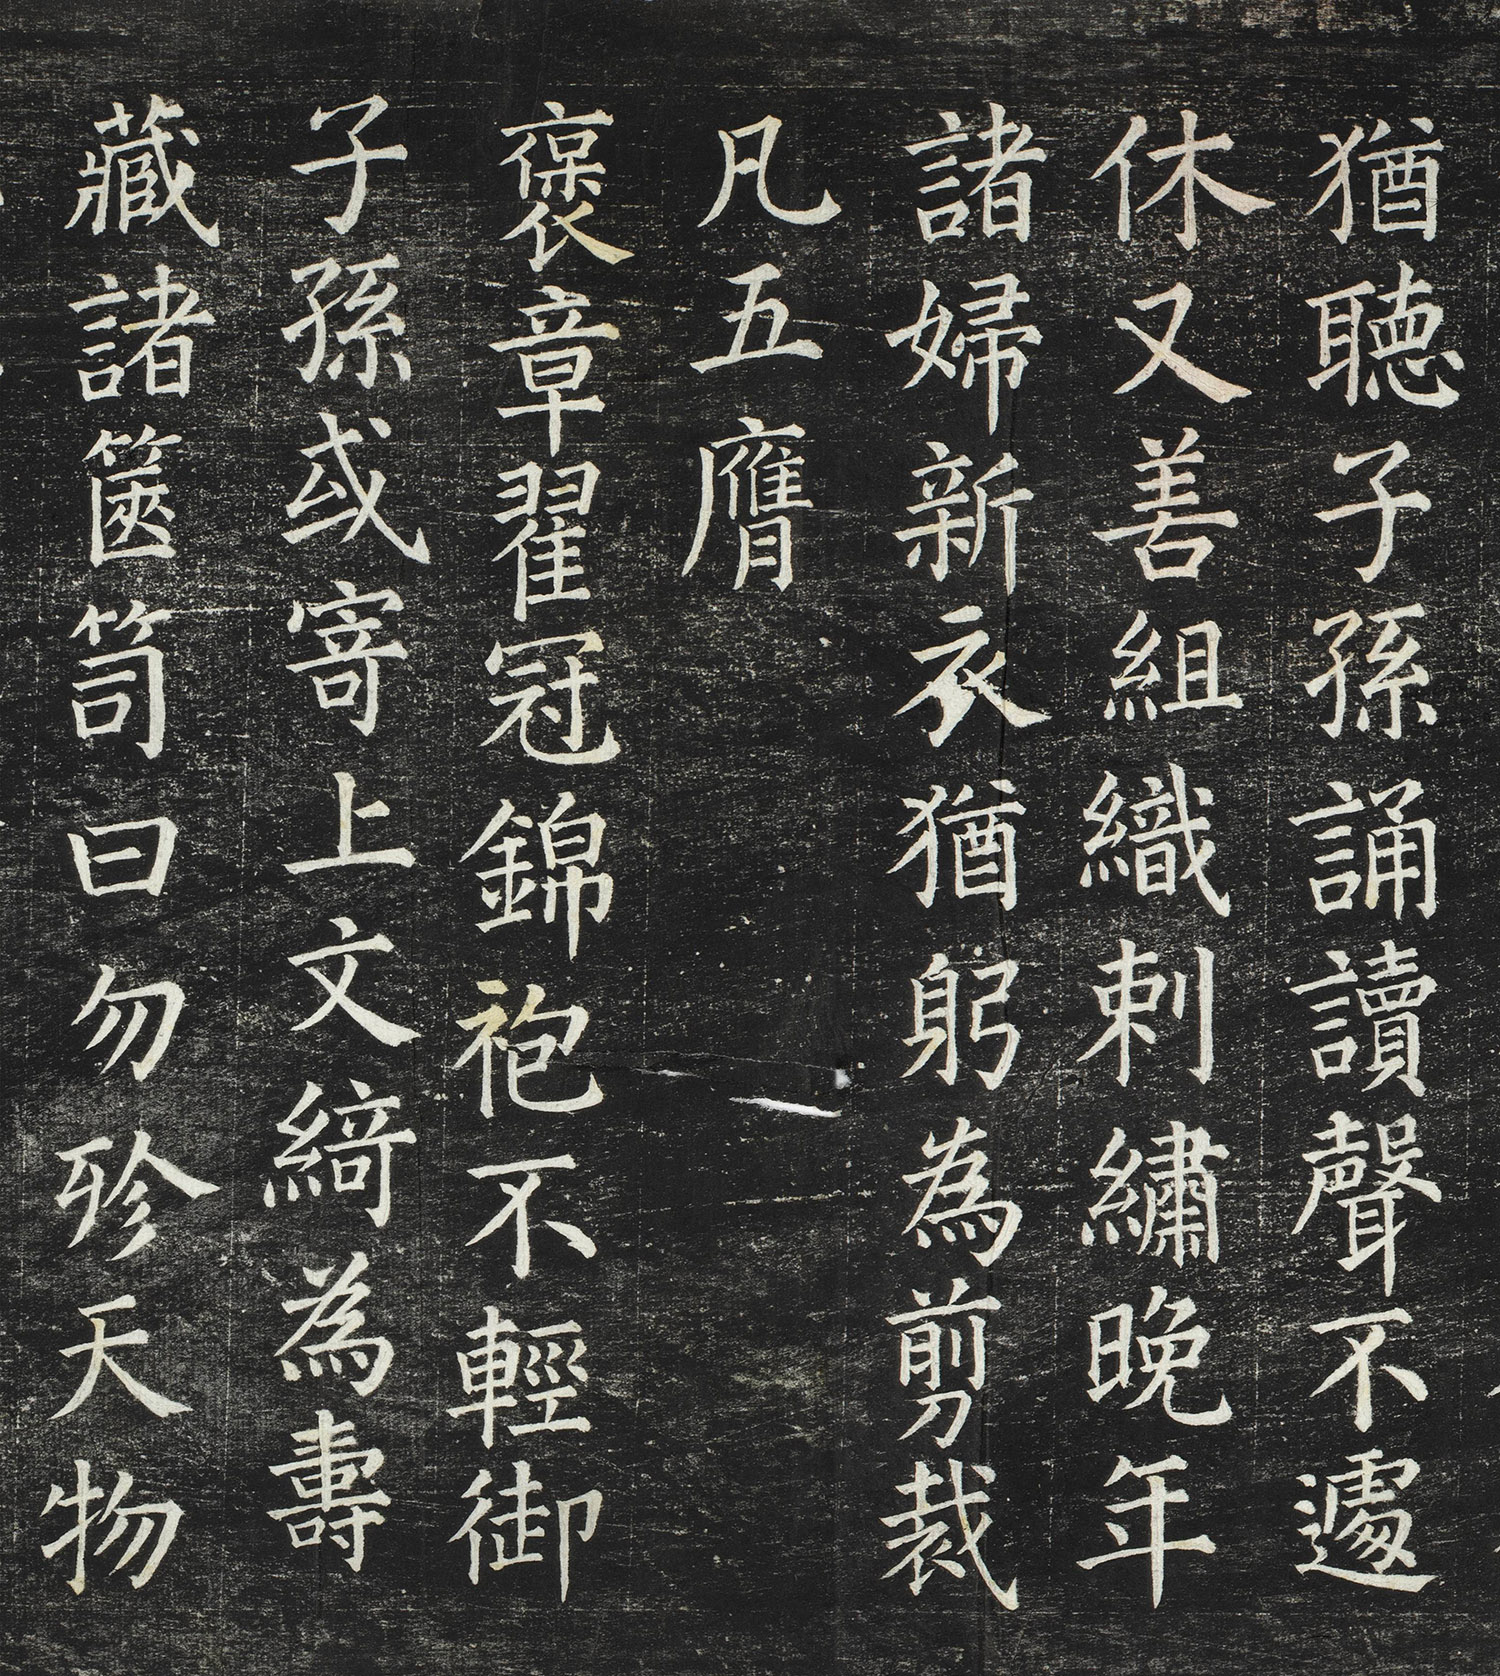 猶聽子孫誦讀聲不遽
休又善組織刺繡晚年
諸婦新衣猶躬為剪裁
凡五膺
褒章翟冠錦袍不輕御
子孫或寄上文綺為壽
藏諸篋笥曰勿殄天物